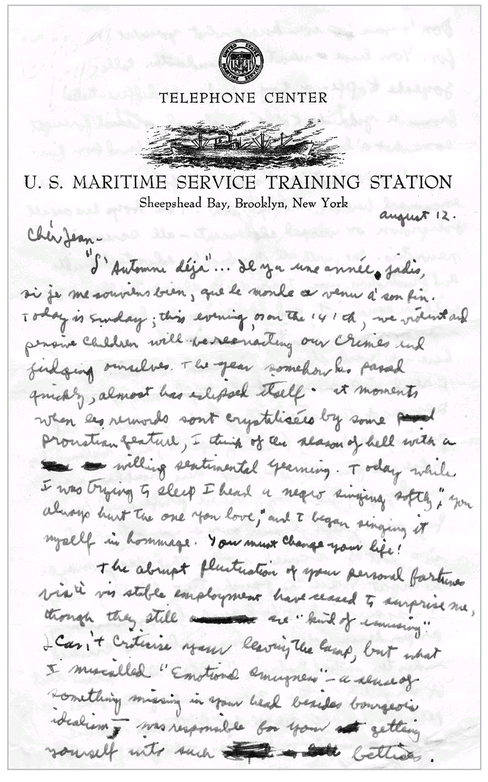 TELEPHONE CENTER
U. S. MARITIME SERVICE TRAINING STATION
Sheepshead Bay, Brooklyn, New York
august 12.
Cher Jean-
"L'Automne déjà"... Il y a une année, jadis,
si je me souviens bien, que le monde a venu a' son fin.
Today is Sunday; this evening, or on the 14th, we violent and
pensive children will be reenacting our crimes and
judging ourselves. The year somehow has passed
quickly, almost has eclipsed itself - at moments
when les remords sont crystalisées by some
proustian gesture, I think of the season of hell with a
willing sentimental yearning. Today while
I was trying to sleep I head a negro singing softly, "you
always hurt the one you love," and I began singing it
myself in hommage. You must change your life!
The abrupt fluctuation of your personal fortunes
vis à vis stable employment have ceased to surprise me,
though they still are "kind of amusing"
I can't criticise your leaving the camp, but what
I miscalled "Emotional smugness" - a sense of
something missing in your head besides bourgeois
idealism - was responsible for your getting
yourself into such betises.